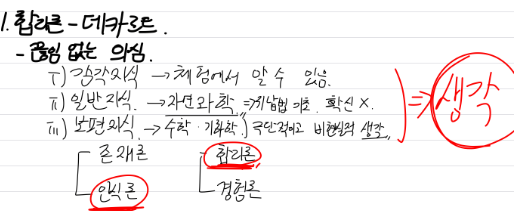 1. 합리론 - 데카르트.
- 끊임 없는 의심.
i) 감각지식 → 체험에서 알 수 있음.
ii) 일반지식. → 자연과학. ⇒ 귀납법 기초. 확신 X.
iii) 보편지식. → 수학·기하학.) 극단적이고 비현실적 생각.
⇒ 생각
존재론
합리론
인식론
경험론